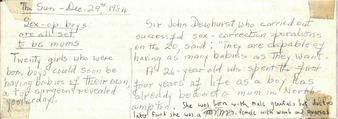 The Sun - Dec. 29th 1984
Sex-op boys
are all set
to be moms
Twenty girls who were
born boys could soon be
having babies of their own,
a top surgeon revealed
yesterday.
Sir John Dewhurst who carried out
successful sex-correction operations
on the 20, said: "They are capable of
having as many babies as they want.
A 26-year-old who spent the first
four years of life as a boy has
already become a mum in North
ampton. She was born with male genitals but doctors
later found she was a female with womb and ovaries